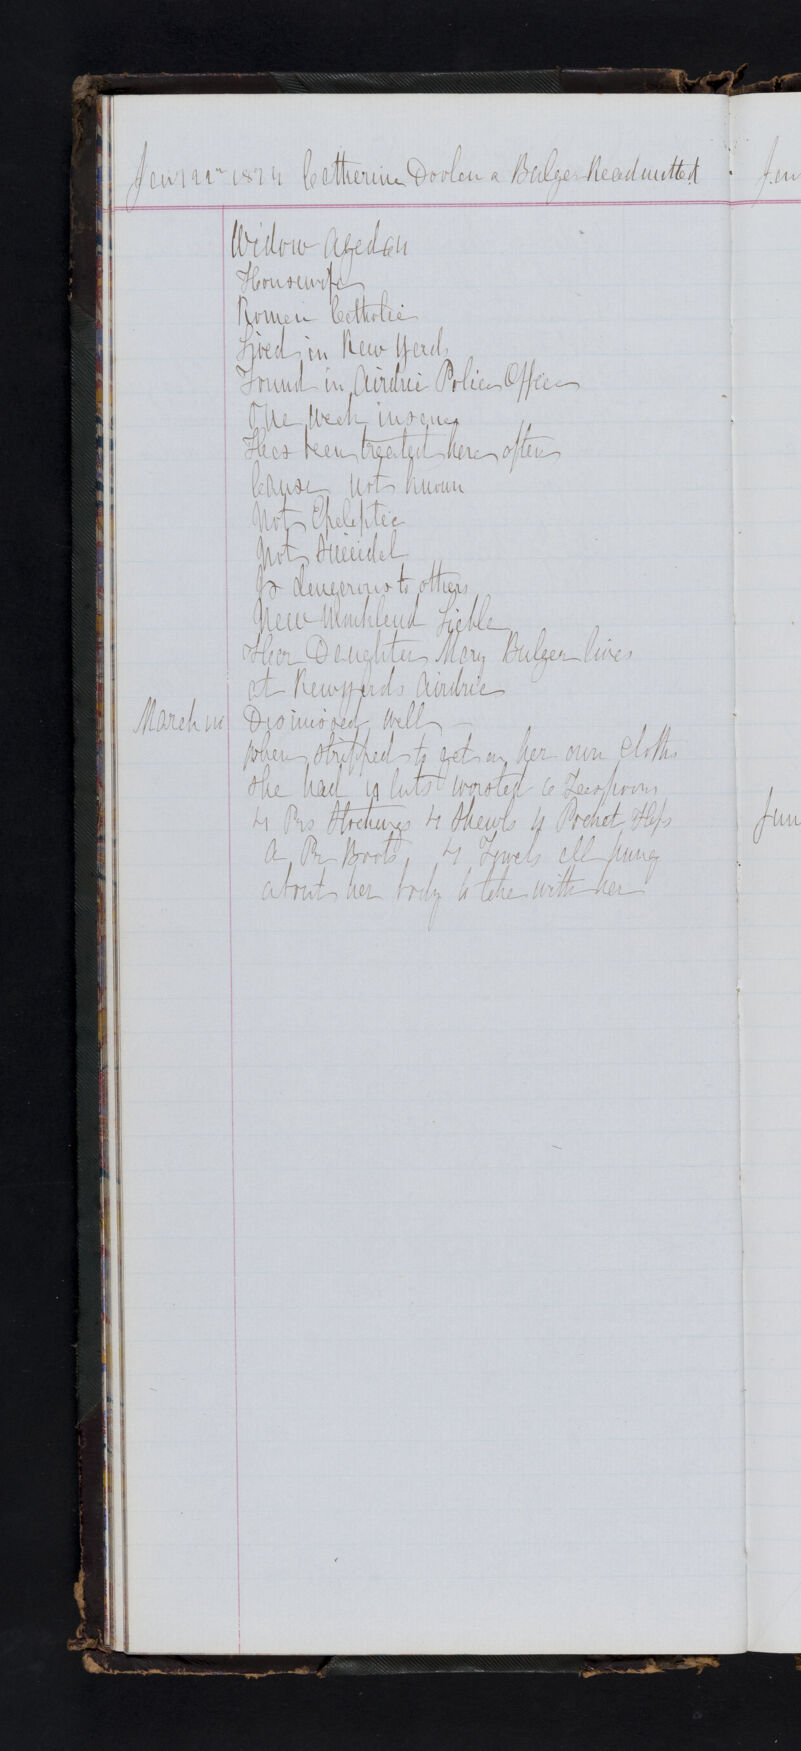 Jany 22nd 1874 Catherine Doolen a Bulger Readmitted
Widow Aged 64
Housewife
Roman Catholic
Lived in New Yard
Found in Airdrie Police Office
One week insane
Has been treated here often
Cause not known
Not Epeleptic
Not Suicidal
Is dangerous to others
New Monkland Liable
Hear Daughter Mary Bulger lives
at Newyards Airdrie
March Dismissed Well
when stripped to get on her own Cloths
she had cuts worsted 6 Teaspoons
4 Prs Stockings 4 Shawls 4 Pocket
A Pr Boots 4 Towels all hung
about her body to take with her
Jan
Jun